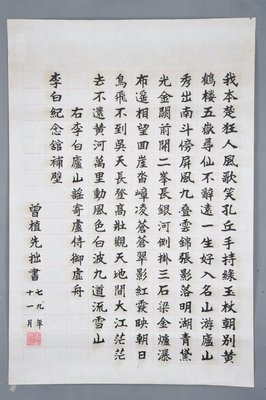 我本楚狂人風歌笑孔丘手持綠玉杖朝別黃
鶴樓五嶽尋仙不辭遠一生好入名山游廬山
秀出南斗傍屏風九疊雲錦張影落明湖青黛
光金闕前開二峯長銀河倒掛三石梁金爐瀑
布遙相望四崖沓嶂凌蒼蒼翠影紅霞映朝日
鳥飛不到吳天長登高壯觀天地間大江茫茫
去不還黃河萬里動風色白波九道流雪山
右李白廬山謠寄盧侍御虛舟
李白紀念館補壁
曾植先拙書
七九年
十一月